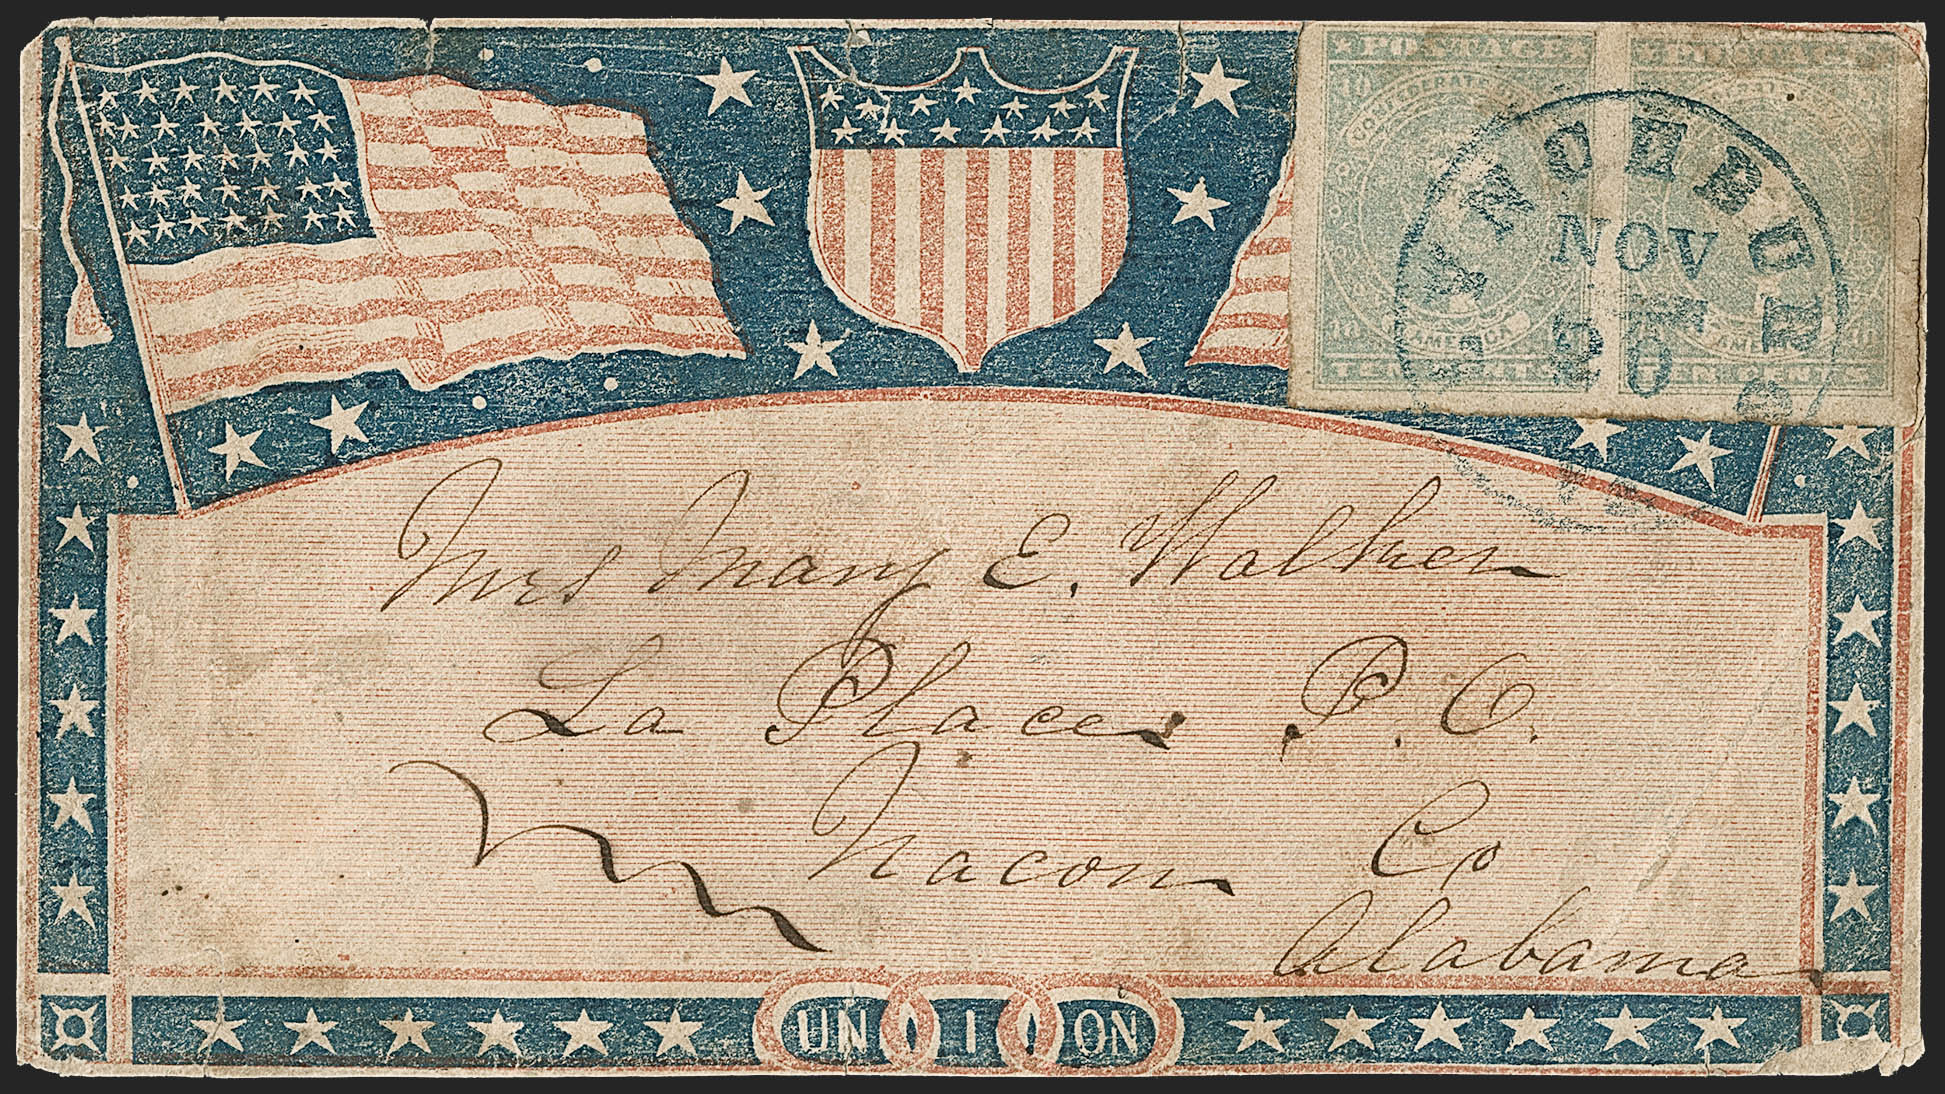 POSTAGE POSTAGE
CONFEDERATE
AMERICA
TEN CENTS TEN CENTS
NOV
26
Mrs Mary E. Walker
La Place P.O.
Macon Co
Alabama
UN I ON